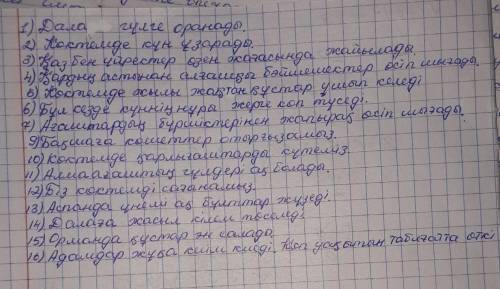 1) Дала гүлге оранады.
2) Көктемде күн ұзарады.
3) Қаз бен үйректер өзен жағасында жайылады.
4) Қардың астынан алғашқы бәйшешектер өсіп шығады.
5) Көктемде жылы жақтан құстар ұшып келеді
6) Бұл кезде күннің нұра жерге көп түседі.
7) Ағаштардың бүршіктерінен жапырақ өсіп шығады.
9) Бақшаға көшеттер отырғызамыз.
10) Көктемде қарлығаштарды күтеміз.
11) Алма ағаштың гүлдері ақ болады.
12) Біз көктемді сағанамыз.
13) Аспанда үнемі ақ бұлттар жүзеді.
14) Далаға жасыл кілем төселді.
15) Орманда құстар ән салады.
16) Адамдар жұқа киім киеді. Көп уақытын табиғатта өткі